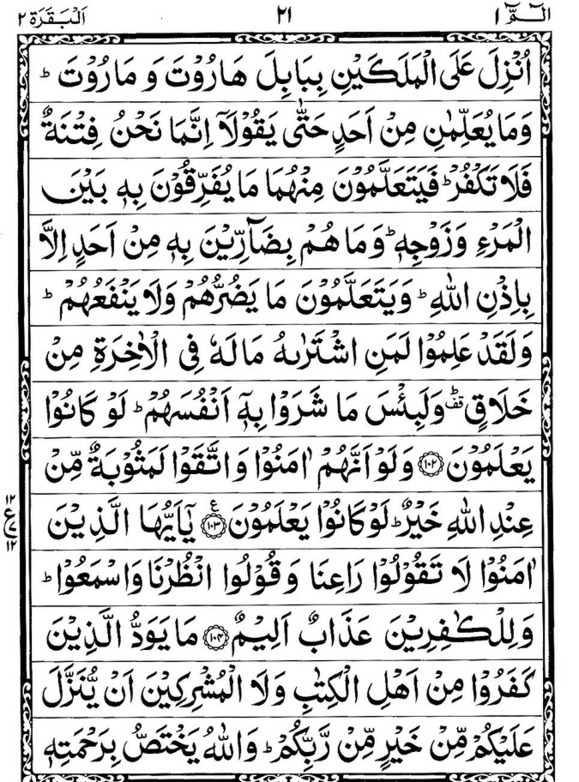 الٓمّٓ ١ ٢١ اَلْبَقَرَة ٢
اُنْزِلَ عَلَى الْمَلَكَيْنِ بِبَابِلَ هَارُوْتَ وَ مَارُوْتَ ؕ
وَمَا يُعَلِّمٰنِ مِنْ اَحَدٍ حَتّٰى يَقُوْلَاۤ اِنَّمَا نَحْنُ فِتْنَةٌ
فَلَا تَكْفُرْ ؕ فَيَتَعَلَّمُوْنَ مِنْهُمَا مَا يُفَرِّقُوْنَ بِهٖ بَيْنَ
الْمَرْءِ وَزَوْجِهٖ ؕ وَمَا هُمْ بِضَآرِّيْنَ بِهٖ مِنْ اَحَدٍ اِلَّا
بِاِذْنِ اللّٰهِ ؕ وَيَتَعَلَّمُوْنَ مَا يَضُرُّهُمْ وَلَا يَنْفَعُهُمْ ؕ
وَلَقَدْ عَلِمُوْا لَمَنِ اشْتَرٰىهُ مَا لَهٗ فِى الْاٰخِرَةِ مِنْ
خَلَاقٍ ؕ قف وَلَبِئْسَ مَا شَرَوْا بِهٖۤ اَنْفُسَهُمْ ؕ لَوْ كَانُوْا
يَعْلَمُوْنَ ﴿۱۰۲﴾ وَلَوْ اَنَّهُمْ اٰمَنُوْا وَاتَّقَوْا لَمَثُوْبَةٌ مِّنْ
عِنْدِ اللّٰهِ خَيْرٌ ؕ لَوْ كَانُوْا يَعْلَمُوْنَ ﴿۱۰۳﴾ ع يٰۤاَيُّهَا الَّذِيْنَ
١٢
ع
٧
١٢
اٰمَنُوْا لَا تَقُوْلُوْا رَاعِنَا وَقُوْلُوا انْظُرْنَا وَاسْمَعُوْا ؕ
وَلِلْكٰفِرِيْنَ عَذَابٌ اَلِيْمٌ ﴿۱۰۴﴾ مَا يَوَدُّ الَّذِيْنَ
كَفَرُوْا مِنْ اَهْلِ الْكِتٰبِ وَلَا الْمُشْرِكِيْنَ اَنْ يُّنَزَّلَ
عَلَيْكُمْ مِّنْ خَيْرٍ مِّنْ رَّبِّكُمْ ؕ وَاللّٰهُ يَخْتَصُّ بِرَحْمَتِهٖ